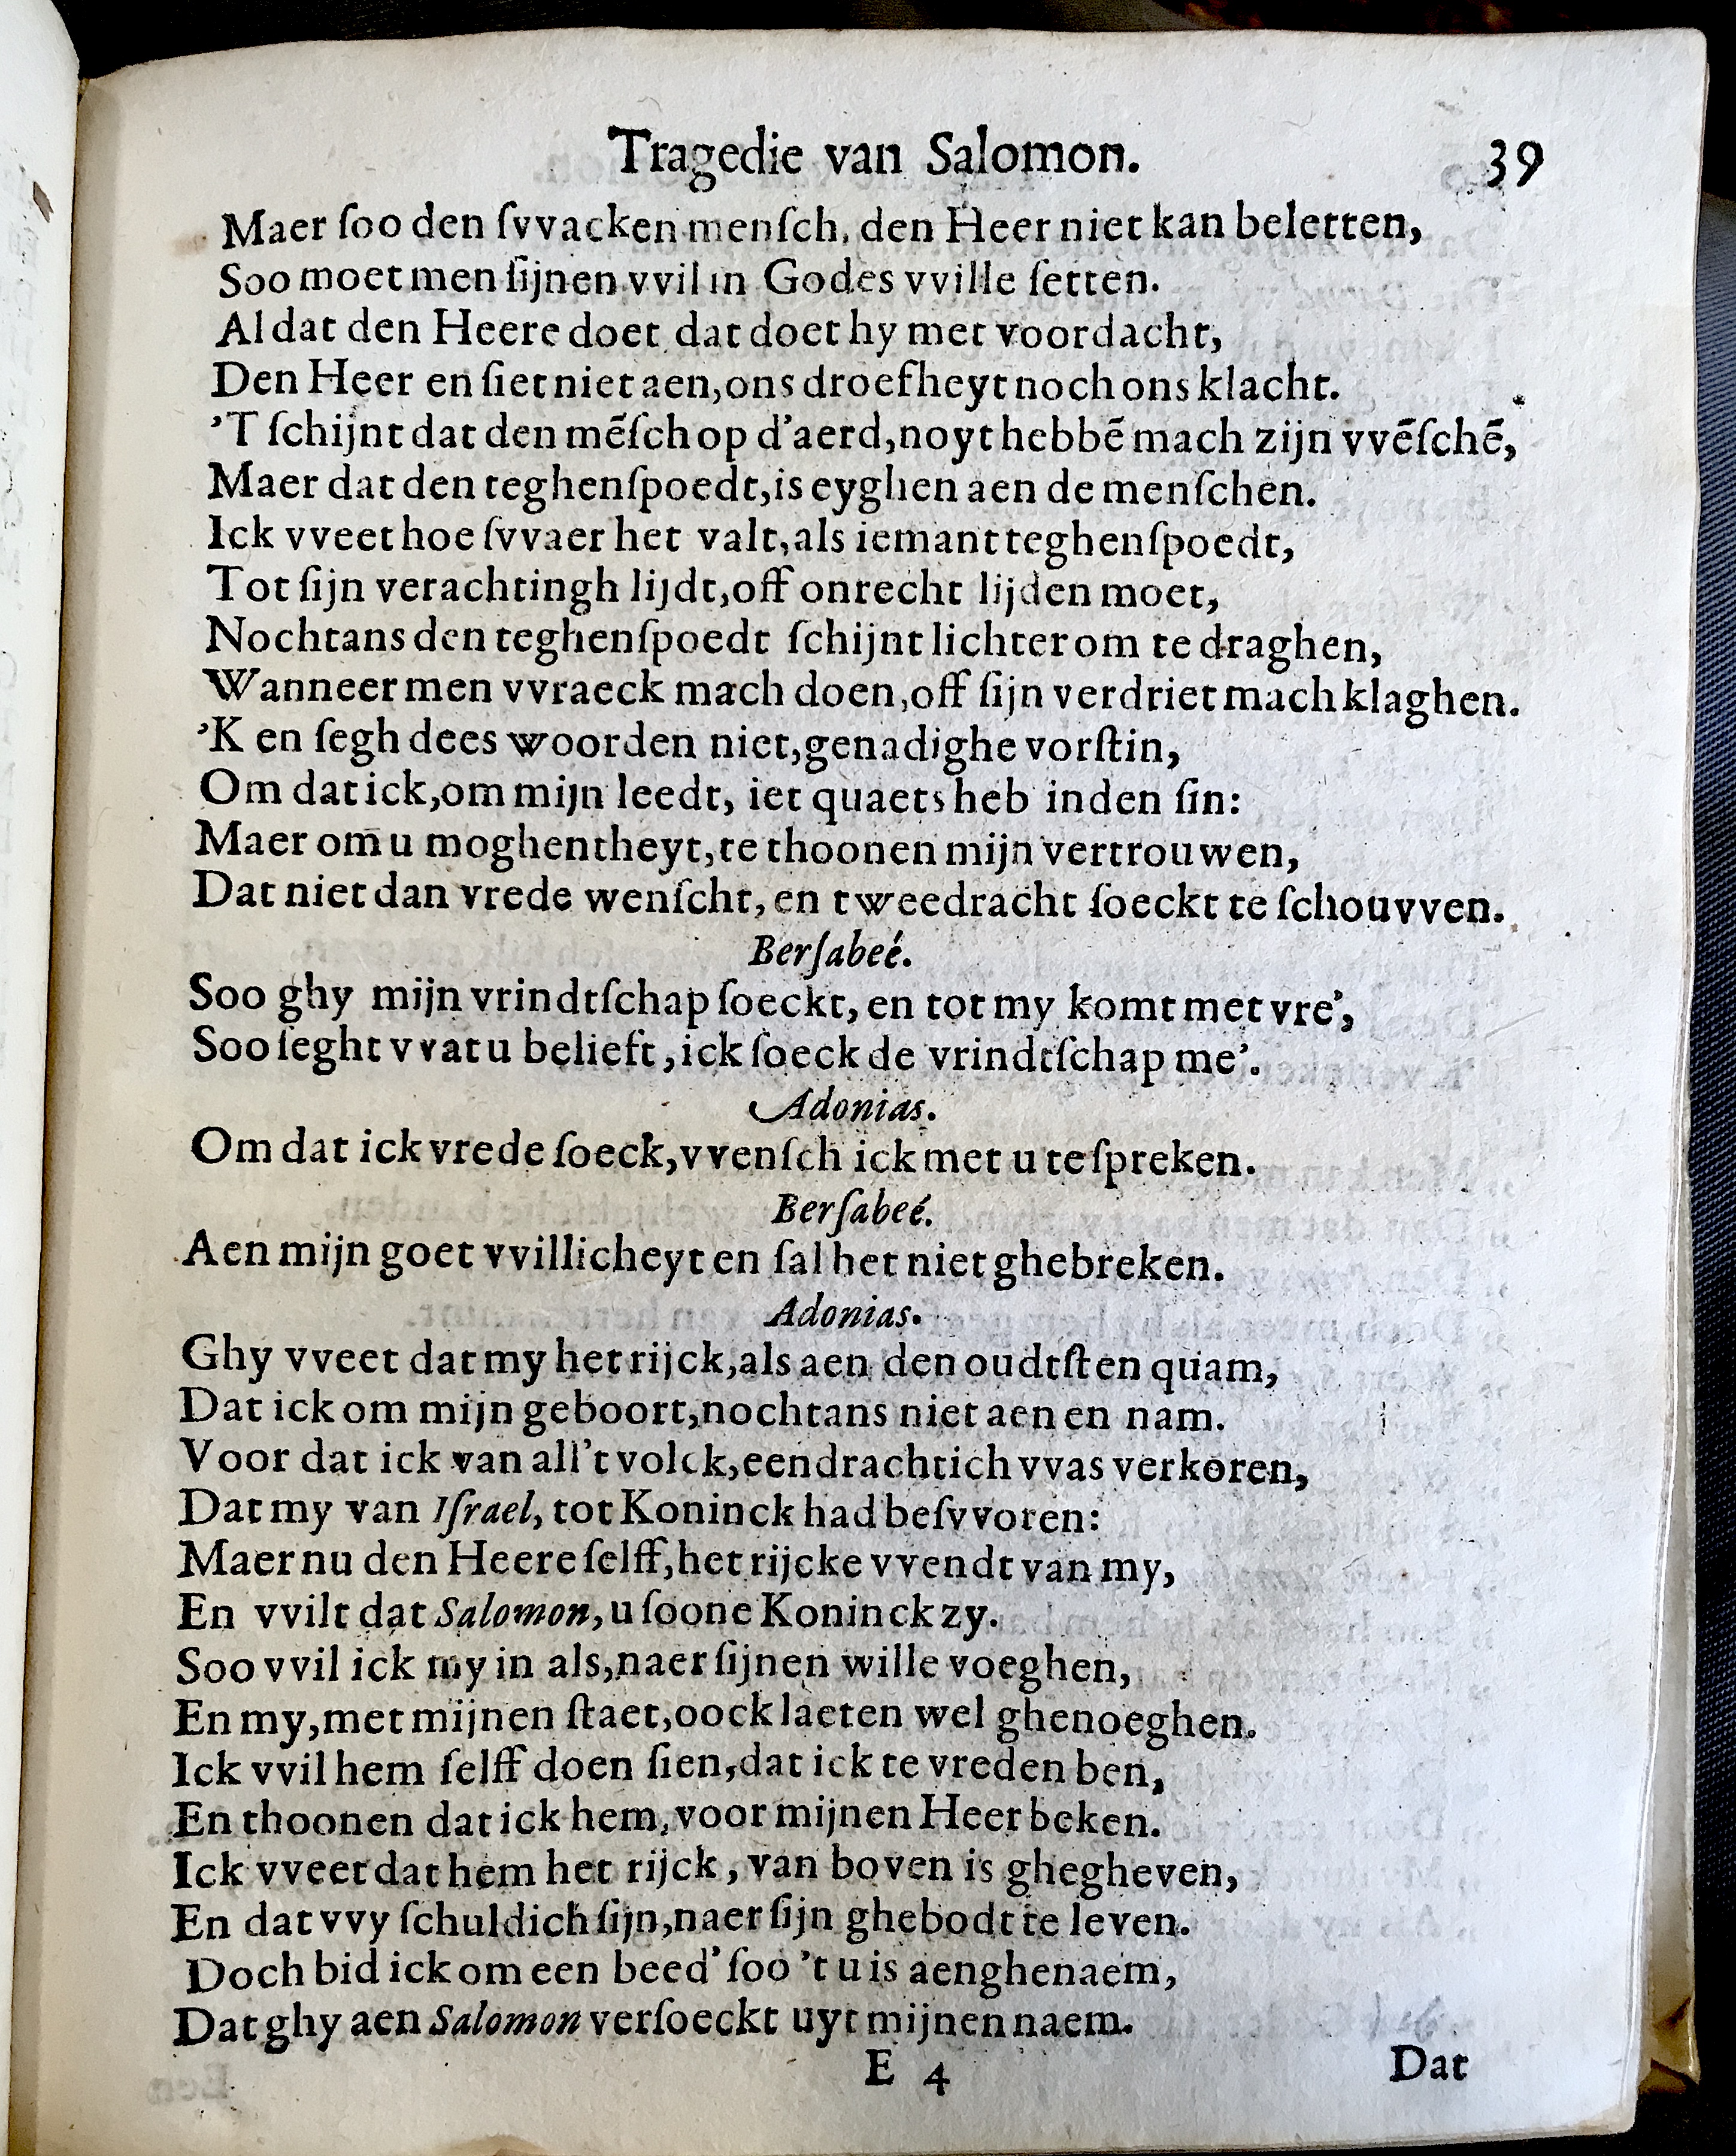 Tragedie van Salomon. 39
Maer ſoo den ſvvacken menſch, den Heer niet kan beletten,
Soo moet men ſijnen vvil in Godes vville ſetten.
Al dat den Heere doet dat doet hy met voordacht,
Den Heer en ſiet niet aen, ons droefheyt noch ons klacht.
'T ſchijnt dat den mẽſch op d'aerd, noyt hebbẽ mach zijn vvẽſchẽ,
Maer dat den teghenſpoedt, is eyghen aen de menſchen.
Ick vveet hoe ſvvaer het valt, als iemant teghenſpoedt,
Tot ſijn verachtingh lijdt, off onrecht lijden moet,
Nochtans den teghenſpoedt ſchijnt lichter om te draghen,
Wanneer men vvraeck mach doen, off ſijn verdriet mach klaghen.
'K en ſegh dees woorden niet, genadighe vorſtin,
Om dat ick, om mijn leedt, iet quaets heb inden ſin:
Maer om u moghentheyt, te thoonen mijn vertrouwen,
Dat niet dan vrede wenſcht, en tweedracht ſoeckt te ſchouvven.
Berſabeé.
Soo ghy mijn vrindtſchap ſoeckt, en tot my komt met vre',
Soo ſeght vvat u belieft, ick ſoeck de vrindtſchap me'.
Adonias.
Om dat ick vrede ſoeck, vvenſch ick met u te ſpreken.
Berſabeé.
Aen mijn goet vvillicheyt en ſal het niet ghebreken.
Adonias.
Ghy vveet dat my het rijck, als aen den oudtſten quam,
Dat ick om mijn geboort, nochtans niet aen en nam.
Voor dat ick van all't volck, eendrachtich vvas verkoren,
Dat my van Iſrael, tot Koninck had beſvvoren:
Maer nu den Heere ſelff, het rijcke vvendt van my,
En vvilt dat Salomon, u ſoone Koninck zy.
Soo vvil ick my in als, naer ſijnen wille voeghen,
En my, met mijnen ſtaet, oock laeten wel ghenoeghen.
Ick vvil hem ſelff doen ſien, dat ick te vreden ben,
En thoonen dat ick hem, voor mijnen Heer beken.
Ick vveet dat hem het rijck, van boven is ghegheven,
En dat vvy ſchuldich ſijn, naer ſijn ghebodt te leven.
Doch bid ick om een beed' ſoo 't u is aenghenaem,
Dat ghy aen Salomon verſoeckt uyt mijnen naem.
E 4 Dat